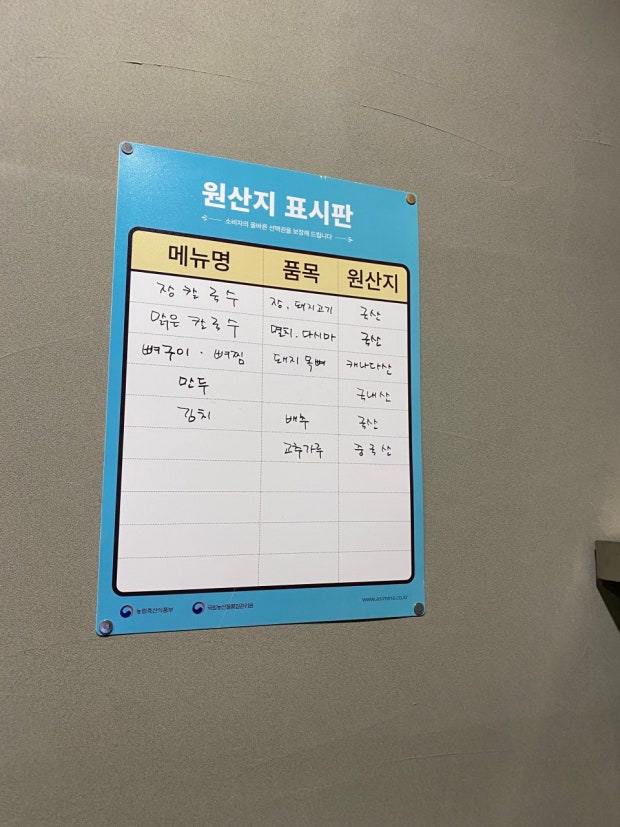 원산지 표시판
소비자의 올바른 선택권을 보장해 드립니다
메뉴명 품목 원산지
장칼국수 장, 돼지고기 국산
맑은 칼국수 멸치, 다시마 국산
뼈구이 · 뼈찜 돼지 목뼈 캐나다산
만두 국내산
김치 배추 국산
고추가루 중국산
농림축산식품부 국립농산물품질관리원